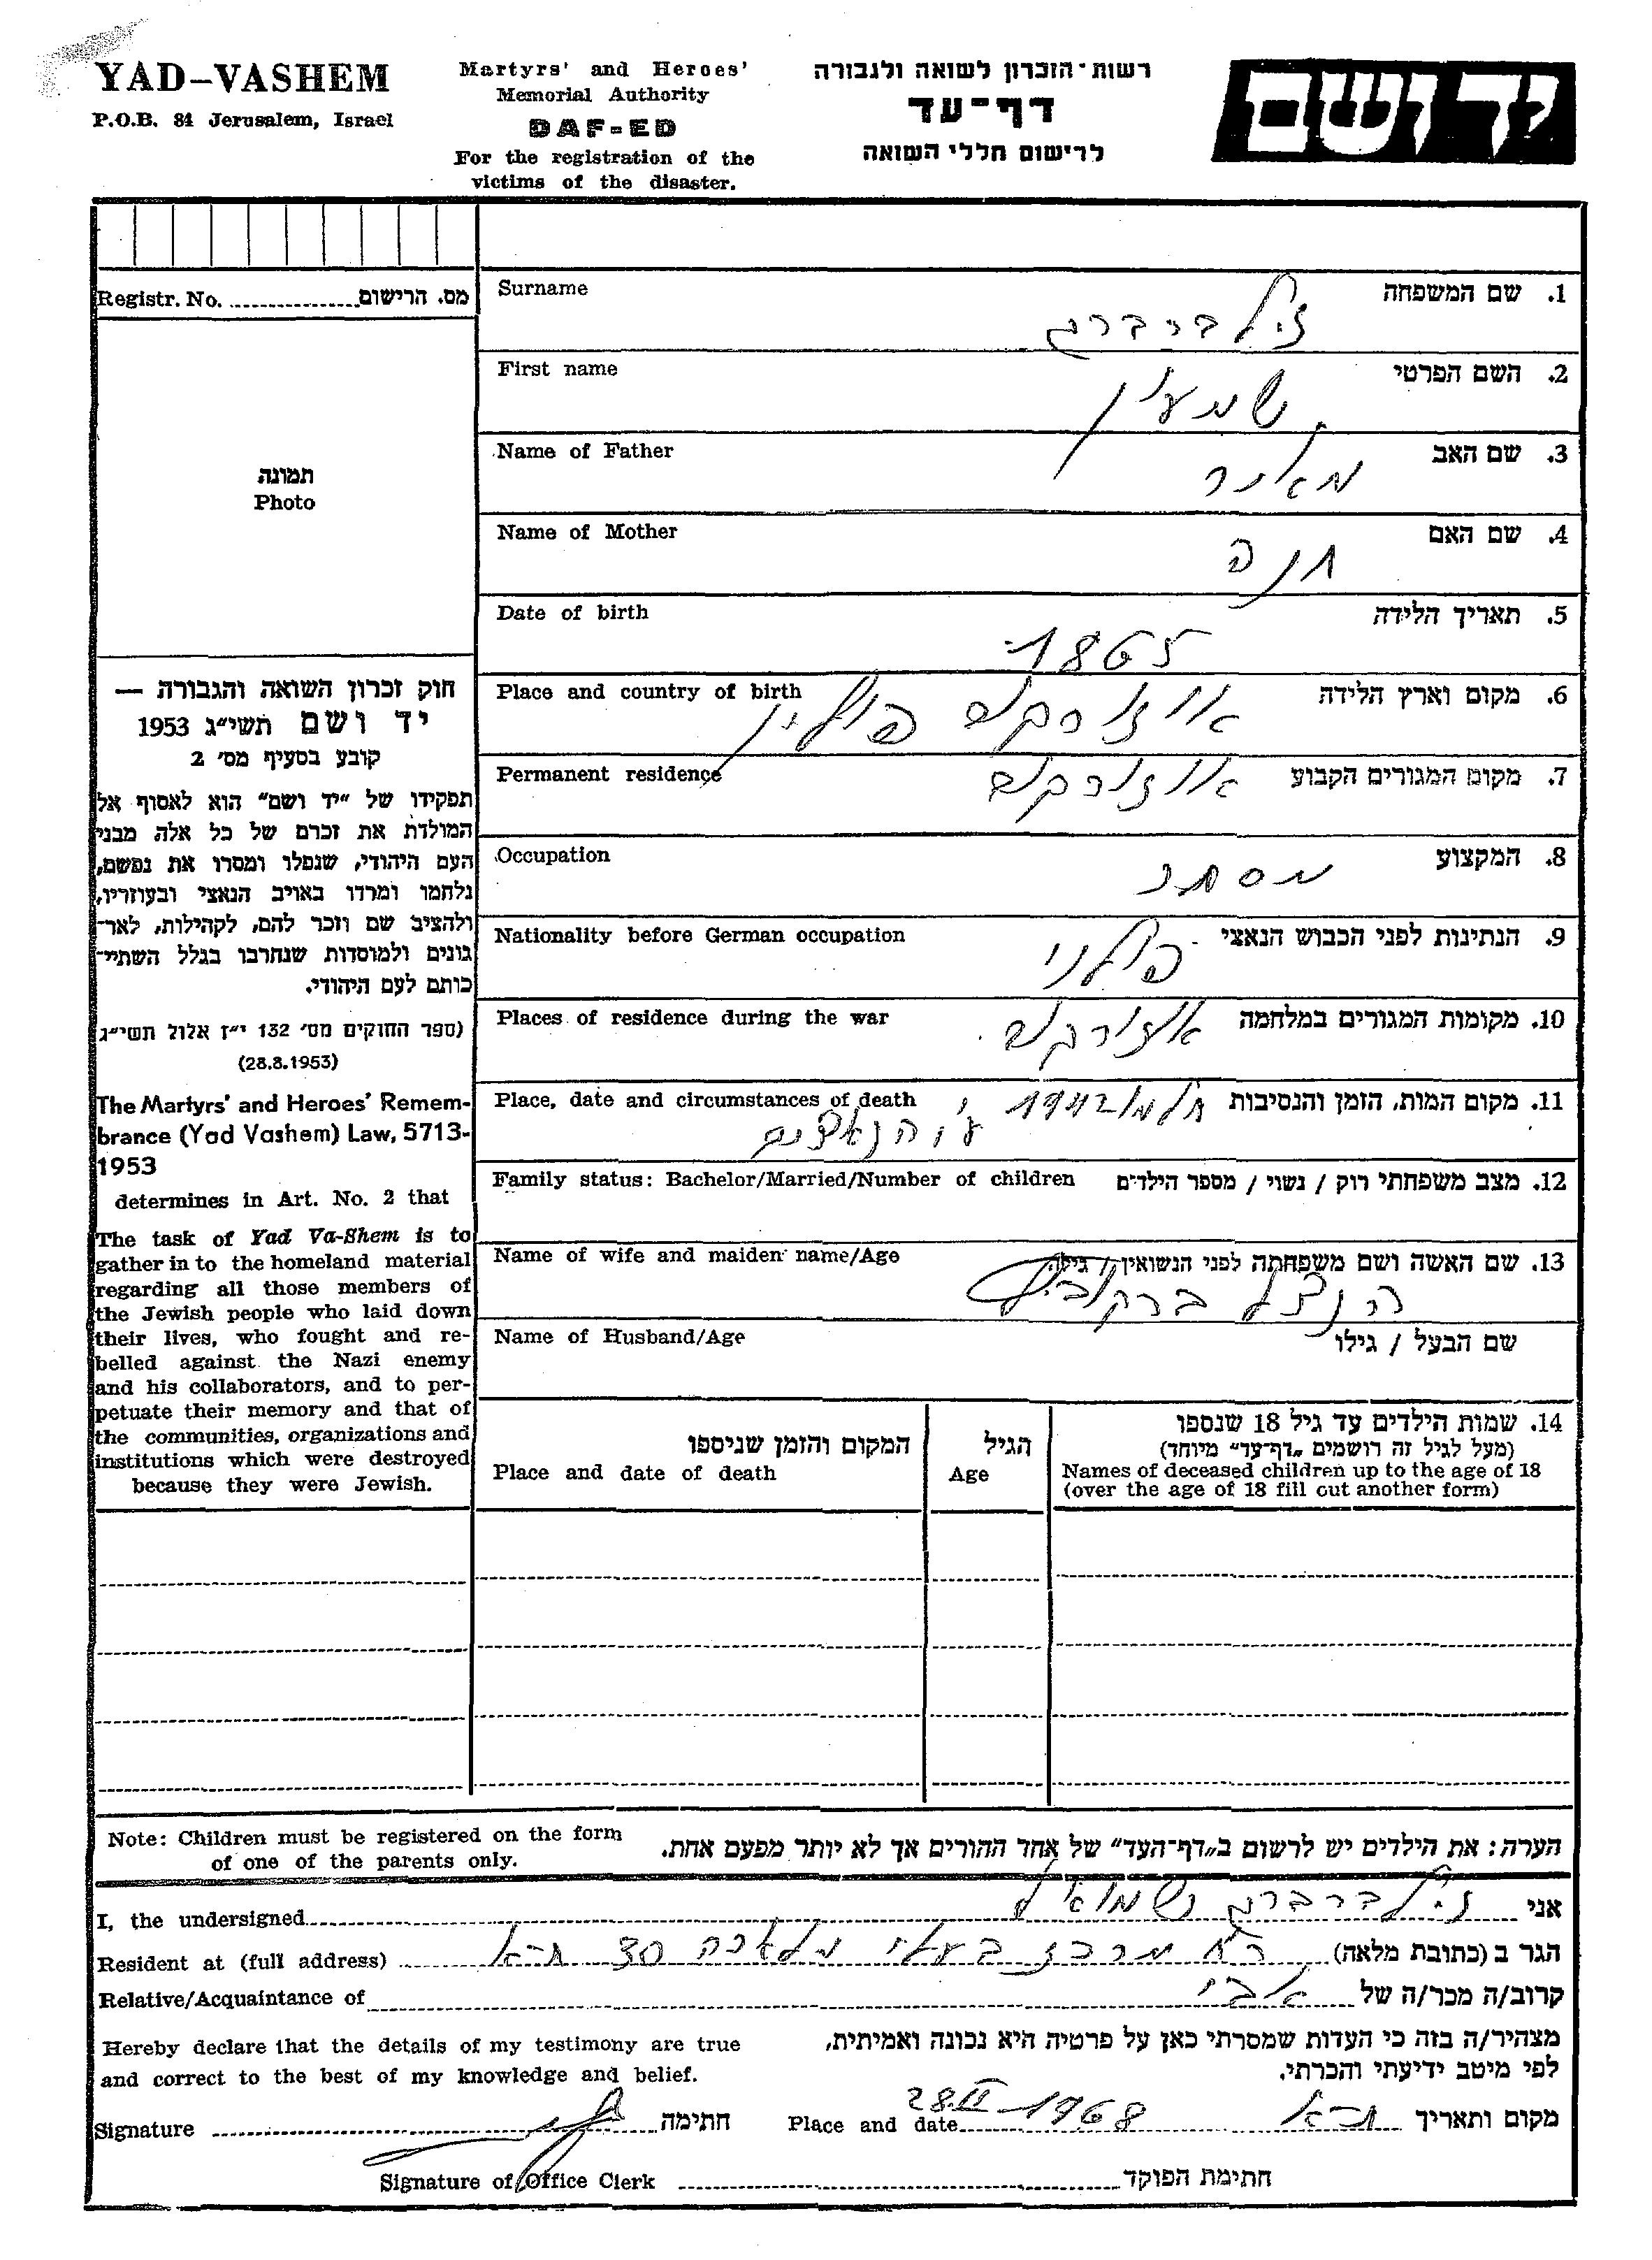 YAD-VASHEM
P.O.B. 84 Jerusalem, Israel
Martyrs' and Heroes'
Memorial Authority
DAF-ED
For the registration of the
victims of the disaster.
רשות-הזכרון לשואה ולגבורה
דף-עד
לרישום חללי השואה
יד ושם
Registr. No. מס. הרישום
תמונה
Photo
חוק זכרון השואה והגבורה —
יד ושם תשי״ג 1953
קובע בסעיף מס׳ 2
תפקידו של "יד ושם" הוא לאסוף אל
המולדת את זכרם של כל אלה מבני
העם היהודי, שנפלו ומסרו את נפשם,
נלחמו ומרדו באויב הנאצי ובעוזריו,
ולהציב שם וזכר להם, לקהילות, לאר-
גונים ולמוסדות שנחרבו בגלל השתיי-
כותם לעם היהודי.
(ספר החוקים מס׳ 132 י״ז אלול תשי״ג
(28.8.1953)
The Martyrs' and Heroes' Remem-
brance (Yad Vashem) Law, 5713-
1953
determines in Art. No. 2 that
The task of Yad Va-Shem is to
gather in to the homeland material
regarding all those members of
the Jewish people who laid down
their lives, who fought and re-
belled against the Nazi enemy
and his collaborators, and to per-
petuate their memory and that of
the communities, organizations and
institutions which were destroyed
because they were Jewish.
Surname 1. שם המשפחה
זילברברג
First name 2. השם הפרטי
שמעון
Name of Father 3. שם האב
מאיר
Name of Mother 4. שם האם
חנה
Date of birth 5. תאריך הלידה
1865
Place and country of birth 6. מקום וארץ הלידה
אוזורקוב פולין
Permanent residence 7. מקום המגורים הקבוע
אוזורקוב
Occupation 8. המקצוע
מסחר
Nationality before German occupation 9. הנתינות לפני הכבוש הנאצי
פולני
Places of residence during the war 10. מקומות המגורים במלחמה
Place, date and circumstances of death 11. מקום המות, הזמן והנסיבות
1942
הנאצים
Family status: Bachelor/Married/Number of children 12. מצב משפחתי רוק / נשוי / מספר הילדים
Name of wife and maiden name/Age 13. שם האשה ושם משפחתה לפני הנשואין / גילה
ברקוביץ
Name of Husband/Age שם הבעל / גילו
14. שמות הילדים עד גיל 18 שנספו
(מעל לגיל זה רושמים "דף-עד" מיוחד)
Names of deceased children up to the age of 18
(over the age of 18 fill out another form)
הגיל
Age
המקום והזמן שניספו
Place and date of death
Note: Children must be registered on the form
of one of the parents only.
הערה: את הילדים יש לרשום ב"דף-העד" של אחד ההורים אך לא יותר מפעם אחת.
I, the undersigned זילברברג שמואל אני
Resident at (full address) רח מרכז בעלי מלאכה 30 ת-א הגר ב (כתובת מלאה)
Relative/Acquaintance of אבי קרוב/ה מכר/ה של
Hereby declare that the details of my testimony are true
and correct to the best of my knowledge and belief.
מצהיר/ה בזה כי העדות שמסרתי כאן על פרטיה היא נכונה ואמיתית,
לפי מיטב ידיעתי והכרתי.
Signature חתימה Place and date 28.II-1968 ת-א מקום ותאריך
Signature of Office Clerk חתימת הפוקד